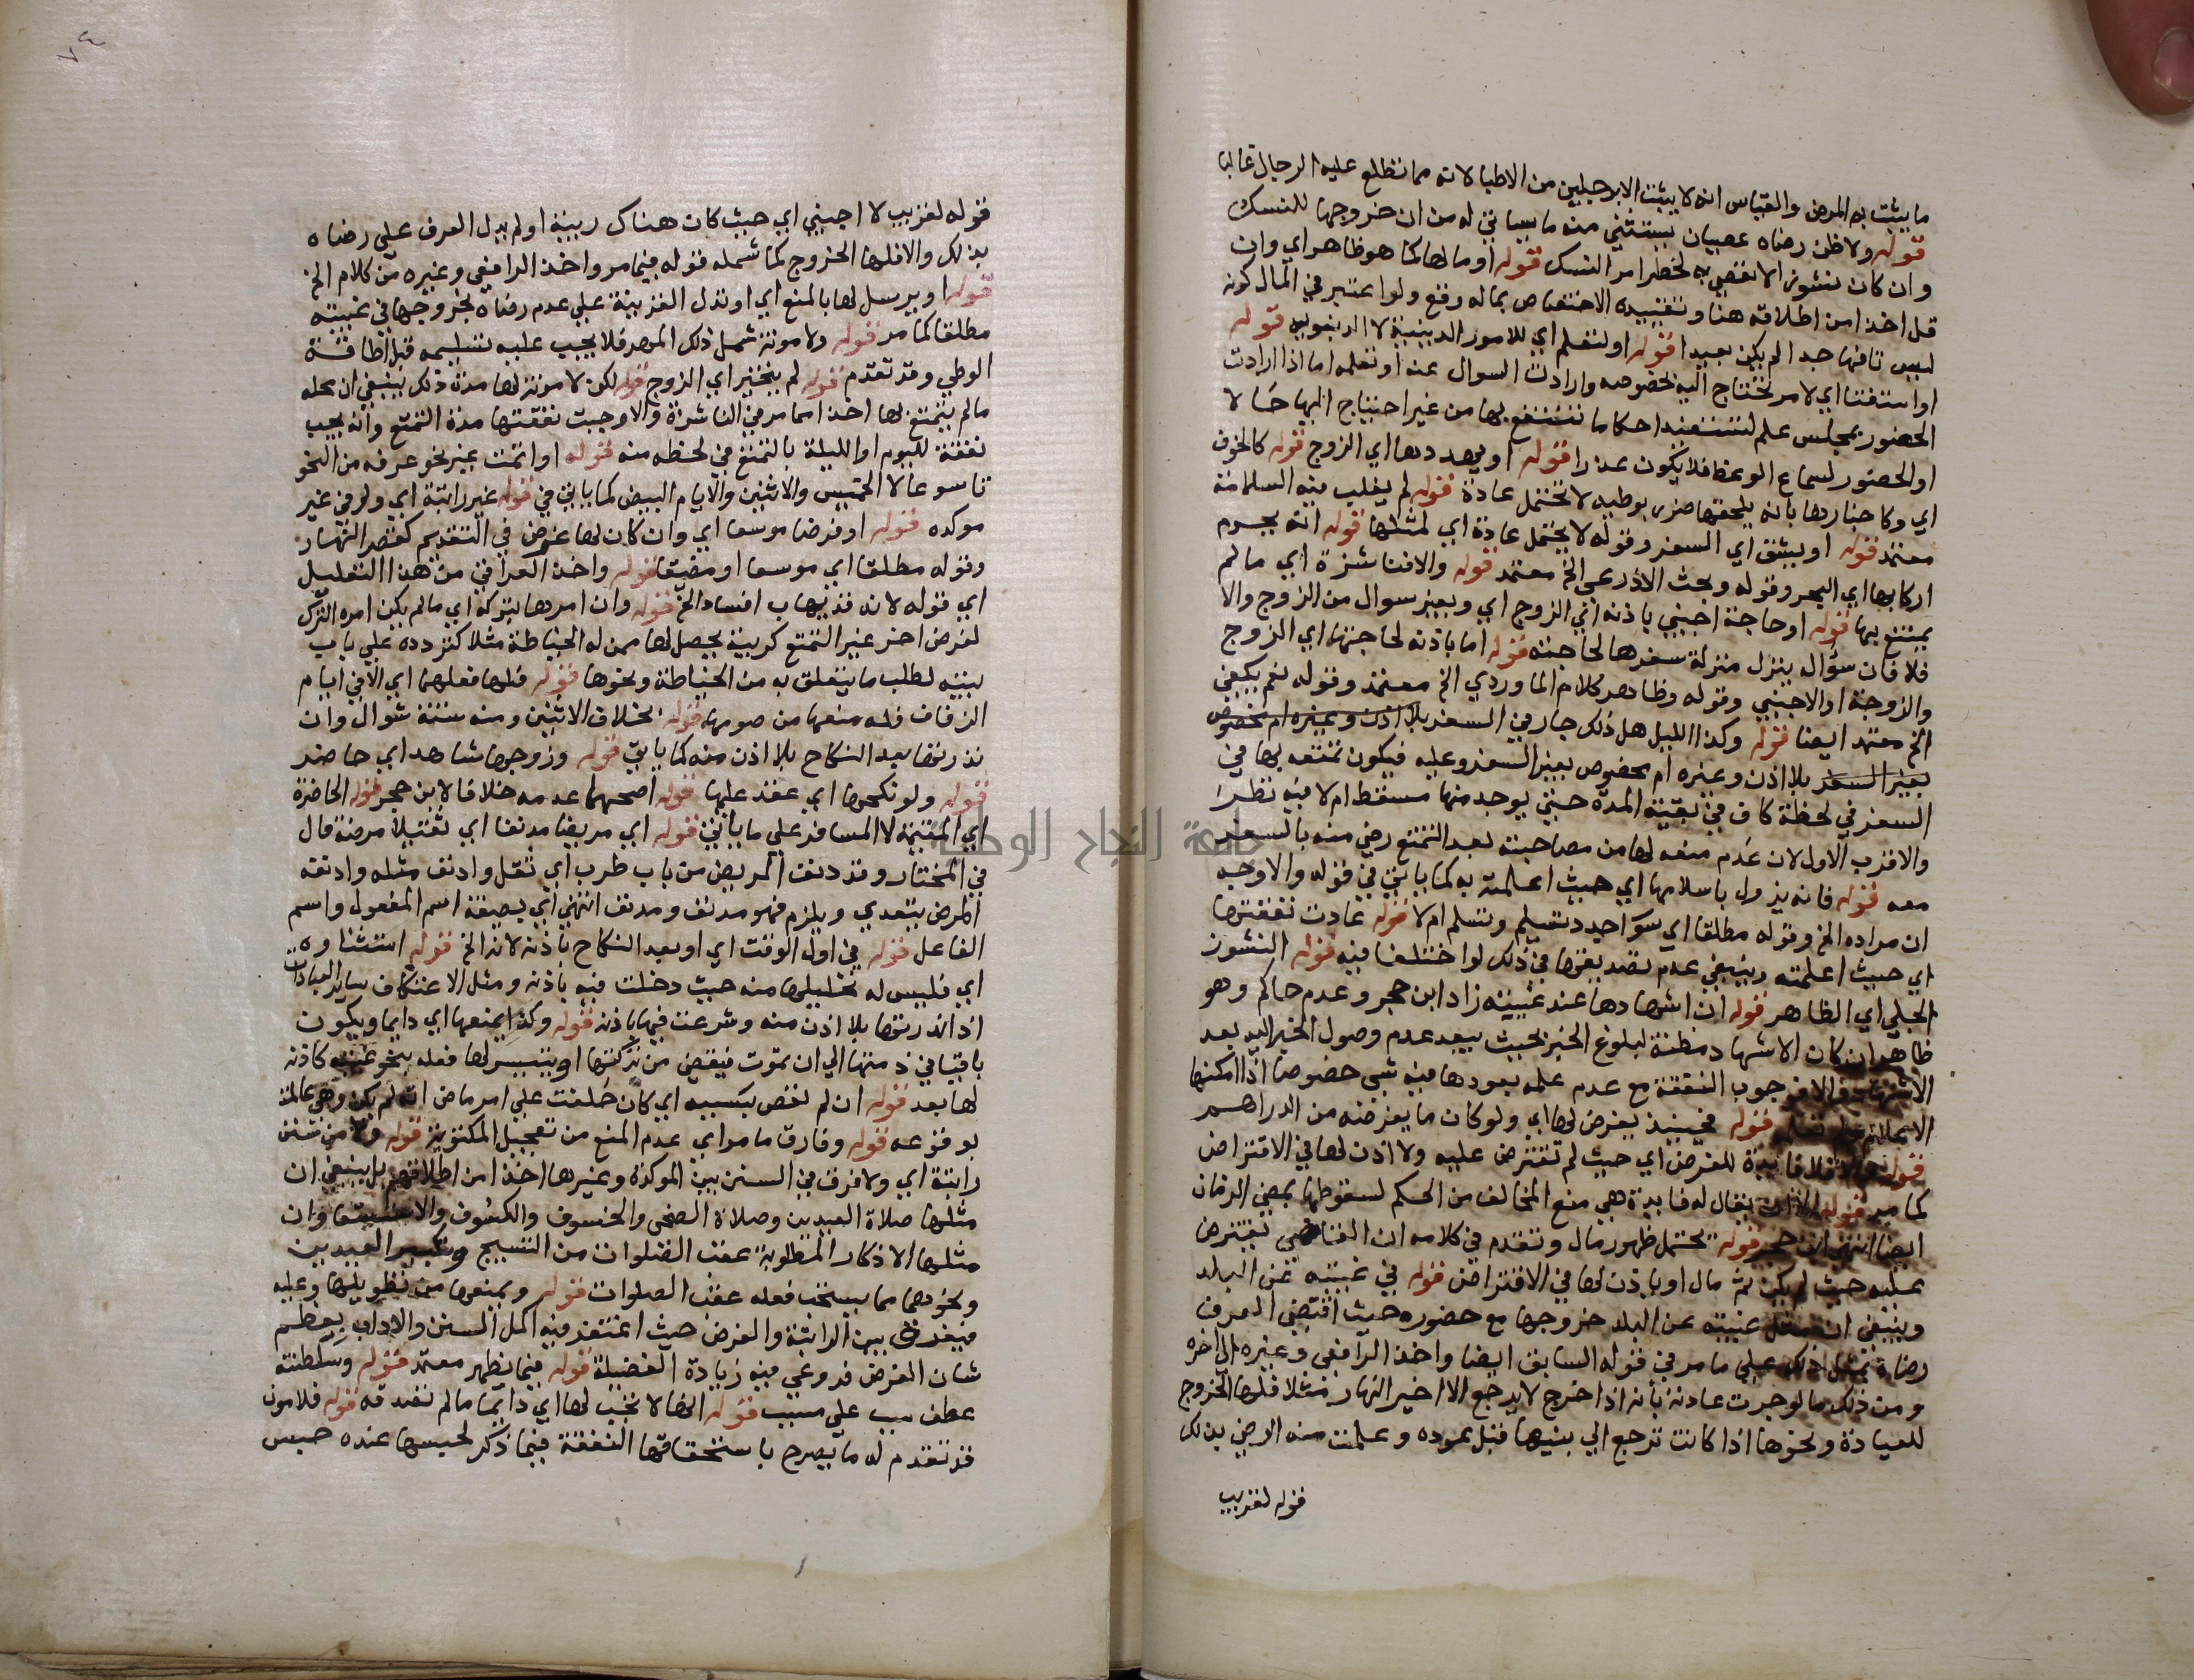 ما يثبت به المرض والقياس انه لا يثبت الا برجلين من الاطبا لانه مما تطلع عليه الرجال غالبا
قوله ولا ظن رضاه عصيان يستثني منه ما سياتي له من ان خروجها للنسك
وان كان نشوزا لا تعصي به لخطر امر النسك قوله او مالها كما هو ظاهر اي وان
قل اخذا من اطلاقه هنا وتقييده الاختصاص بماله وقع ولو اعتبر في المال كونه
ليس تافها جدا لم يكن بعيدا قوله او لتعلم اي للامور الدينية لا الدنيويه قوله
او استفتا اي لامر تحتاج اليه بخصوصه وارادت السوال عنه او تعلمه اما اذا ارادت
الحضور بمجلس علم لتستفيد احكاما تنتفع بها من غير احتياج اليها حالا
او الحضور لسماع الوعظ فلا يكون عذرا قوله او يهددها اي الزوج قوله كالخوف
اي وكاخبارها بانه يلحقها ضرر بوطيه لا تحتمل عادة قوله لم يغلب فيه السلامة
معتمد قوله او يشق اي السفر وقوله لا يحتمل عادة اي لمثلها قوله انه يحرم
اركابها اي البحر وقوله وبحث الاذرعي الخ معتمد قوله والا فناشزة اي ما لم
يمتنع بها قوله او حاجة اجنبي باذنه اي الزوج اي وبغير سوال من الزوج والا
فلا فان سؤاله ينزل منزلة سفرها لحاجته قوله اما باذنه لحاجتها اي الزوج
والزوجة او الاجنبي وقوله وظاهر كلام الماوردي الخ معتمد وقوله نعم يكفي
الخ معتمد ايضا قوله وكذا الليل هل ذلك جار في السفر بلا اذن وغيره ام مخصوص
بغير السفر بلا اذن وغيره ام مخصوص بغير السفر وعليه فيكون تمتعه بها في
السفر في لحظة كاف في بقية المدة حتي يوجد منها مسقط ام لا فيه نظر
والاقرب الاول لان عدم منعه لها من مصاحبته بعد التمتع رضي منه بالسفر
معه قوله فانه يزول باسلامها اي حيث اعلمته به كما ياتي في قوله والاوجه
ان مراده الخ وقوله مطلقا اي سوا جدد تسليم وتسلم ام لا قوله عادت نفقتها
اي حيث اعلمته وينبغي عدم تصديقها في ذلك لو اختلفا فيه قوله النشوز
الجلي اي الظاهر قوله ان اشهادها عند غيبته زاد ابن حجر وعدم حاكم وهو
ظاهر ان كان الاشهاد مظنة لبلوغ الخبر بحيث يبعد عدم وصول الخبر اليه بعد
الاشهاد والا فوجوب النفقة مع عدم علمه بعودها فيه شي خصوصا اذا امكنها
قوله فحينيذ يفرض لها اي ولو كان ما يفرضه من الدراهم
قوله فايدة للفرض اي حيث لم تقترض عليه ولا اذن لها في الاقتراض
كما مر قوله يقال له فايدة هي منع المخالف من الحكم لسقوطها بمضي الزمان
ايضا انتهي ابن حجر قوله يحتمل ظهور مال وتقدم في كلامه ان القاضي يقترض
عليه حيث لم يكن ثم مال او ياذن لها في الاقتراض قوله في غيبته عن البلد
وينبغي ان مثل غيبته عن البلد خروجها مع حضوره حيث اقتضي العرف
رضاه بمثل ذلك علي ما مر في قوله السابق ايضا واخذ الرافعي وغيره الي اخره
ومن ذلك ما لو جرت عادته بانه اذا خرج لا يرجع الا اخير النهار مثلا فلها الخروج
للعيادة ونحوها اذا كانت ترجع الي بيتها قبل عوده وعلمت منه الرضي بذلك
قوله لقريب
٧٤
قوله لقريب لا اجنبي اي حيث كان هناك ريبة او لم يدل العرف علي رضاه
بذلك والا فلها الخروج كما شمله قوله فيما مر واخذ الرافعي وغيره من كلام الخ
قوله او يرسل لها بالمنع اي او تدل القرينة علي عدم رضاه بخروجها في غيبته
مطلقا كما مر قوله ولا مونة شمل ذلك المهر فلا يجب عليه تسليمه قبل اطاقة
الوطي وقد تقدم قوله لم يتخير اي الزوج قوله لكن لا مونة لها مدة ذلك ينبغي ان محله
ما لم يتمتع بها اخذا مما مر في الناشزة والا وجبت نفقتها مدة التمتع وانه يجب
نفقة لليوم او الليلة بالتمتع في لحظه منه قوله او اتمت بغير نحو عرفه من النحو
تاسوعا لا الخميس والاثنين والايام البيض كما ياتي في قوله غير راتبة اي ولو في غير
موكده قوله او فرضا موسعا اي وان كان لها غرض في التقديم كقصر النهار
وقوله مطلقا اي موسعا او مضيقا قوله واخذ العراقي من هذا التعليل
اي قوله لانه قد يهاب افساد الخ قوله وان امرها بتركه اي ما لم يكن امره الترك
لغرض اخر غير التمتع كريبة يحصل لها ممن له الخياطة مثلا كتردده علي باب
بيته لطلب ما يتعلق به من الخياطة ونحوها قوله فلها فعلهما اي الا في ايام
الزفاف فله منعها من صومها قوله بخلاف الاثنين ومنه ستة شوال وان
نذرتها بعد النكاح بلا اذن منه كما ياتي قوله وزوجها شاهد اي حاضر
قوله ولو نكحها اي عقد عليها قوله اصحهما عدمه خلافا لابن حجر قوله الحاضرة
اي المقيمة لا المسافر علي ما ياتي قوله اي مريضا مدنفا اي ثقيلا مرضه قال
في المختار وقد دنف المريض من باب طرب اي ثقل وادنف مثله وادنفه
المرض يتعدي ويلزم فهو مدنف ومدنف انتهي اي بصيغة اسم المفعول واسم
الفاعل قوله في اول الوقت اي او بعد النكاح باذنه لانه الخ قوله استثناوه
اي فليس له تحليلها منه حيث دخلت فيه باذنه ومثل الاعتكاف ساير العبادات
اذا نذرتها بلا اذن منه وشرعت فيها باذنه قوله وكذا يمنعها اي دايما ويكون
باقيا في ذمتها الي ان تموت فيقضي من تركتها او يتيسر لها فعله بنحو غيبته كاذنه
لها بعد قوله ان لم تغص بكسبه اي كان حلفت علي امر ماض انه لم يكن وهي عالمة
بوقوعه قوله وفارق ما مر اي عدم المنع من تعجيل المكتوبة قوله ولا من سنن
راتبة اي ولا فرق في السنن بين الموكدة وغيرها اخذا من اطلاقهم بل ينبغي ان
مثلها صلاة العيدين وصلاة الضحي والخسوف والكسوف والاستسقا وان
مثلها الاذكار المطلوبة عقب الصلوات من التسبيح وتكبير العيدين
ونحوهما مما يستحب فعله عقب الصلوات قوله ويمنعها من تطويلها وعليه
فيفرق بين الراتبة والفرض حيث اغتفر فيه اكمل السنن والاداب بعظم
شان الفرض فروعي فيه زيادة الفضيلة قوله فيما يظهر معتمد قوله وسلطنته
عطف سبب علي مسبب قوله انها لا تجب لها اي دايما ما لم تصدقه قوله فلا مون
قد تقدم له ما يصرح باستحقاقها النفقة فيما ذكر لحبسها عنده حبس
جامعة النجاح الوطنية